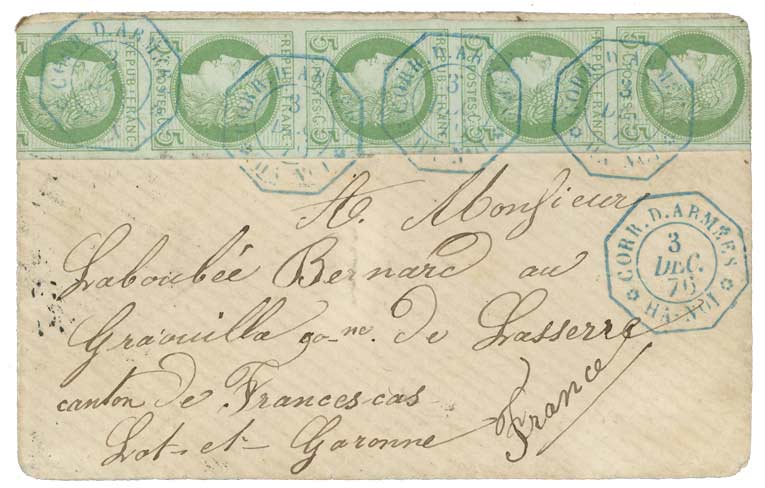 5 POSTES 5
REPUB. FRANC.
5 POSTES 5
REPUB. FRANC.
5 POSTES 5
REPUB. FRANC.
5 POSTES 5
REPUB. FRANC.
5 POSTES 5
CORR. D. ARMÉES
CORR. D. ARMÉES
3
HA-NOI
CORR. D. ARMÉES
3
HA-NOI
A. Monsieur
Laboubée Bernard au
CORR. D. ARMÉES
3
DEC.
76
HA-NOI
Graouilla de Lasserre
canton de Francescas
Lot-et-Garonne
France